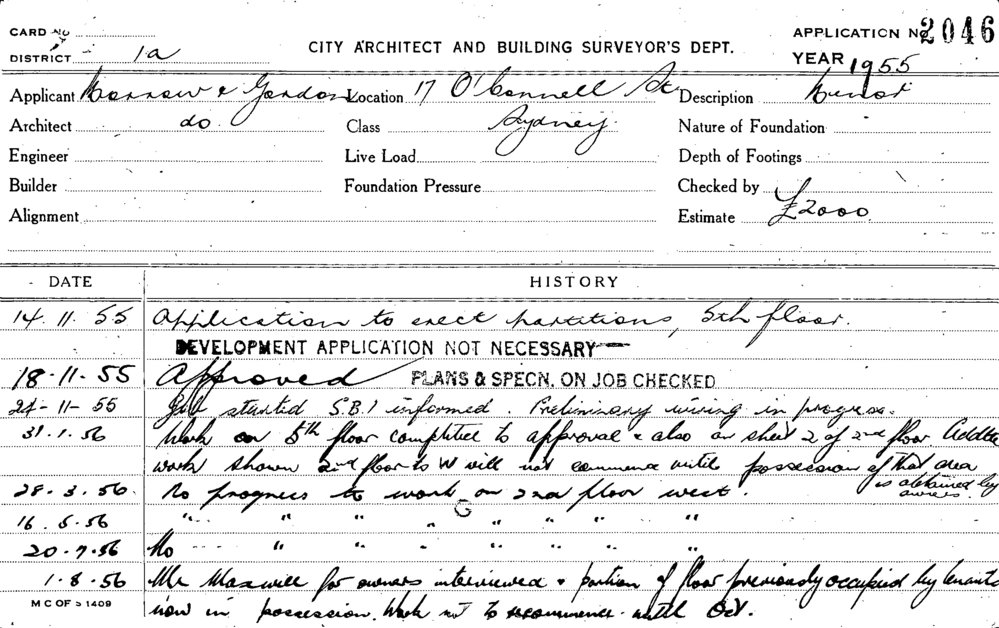 CARD No
DISTRICT 1a
CITY ARCHITECT AND BUILDING SURVEYOR'S DEPT.
APPLICATION No 2046
YEAR 1955
Applicant Morrow & Gordon Location 17 O'Connell St Description Minor
Architect do. Class Sydney. Nature of Foundation
Engineer Live Load Depth of Footings
Builder Foundation Pressure Checked by
Alignment Estimate £2000
DATE HISTORY
14.11.55 Application to erect partitions, 5th floor.
DEVELOPMENT APPLICATION NOT NECESSARY
18-11-55 Approved PLANS & SPECN. ON JOB CHECKED
24-11-55 Job started S.B.I informed. Preliminary wiring in progress.
31.1.56 Work on 5th floor completed to approval & also on sheet 2 of 2nd floor
work shown 2nd floor to W will not commence until possession of that area
is obtained by
owners.
28.3.56. No progress to work on 2nd floor west.
16.5.56 " " " " " " " "
20.7.56 No " " " " " " "
1.8.56 Mr Maxwell for owners interviewed & portion of floor previously occupied by tenants
now in possession. Work not to recommence until Oct.
M C OF S 1409